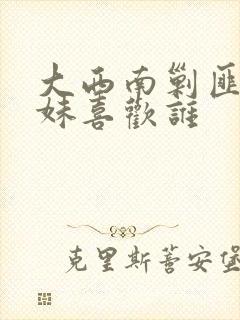 大西南剿匪
妹喜歡誰
克里斯蒂安堡